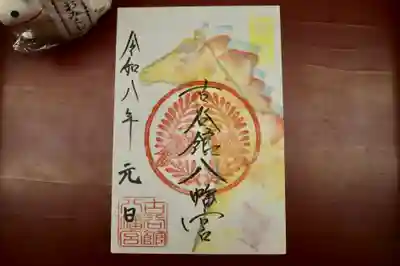 古谷館八幡宮
令和八年元日
古谷館八幡宮